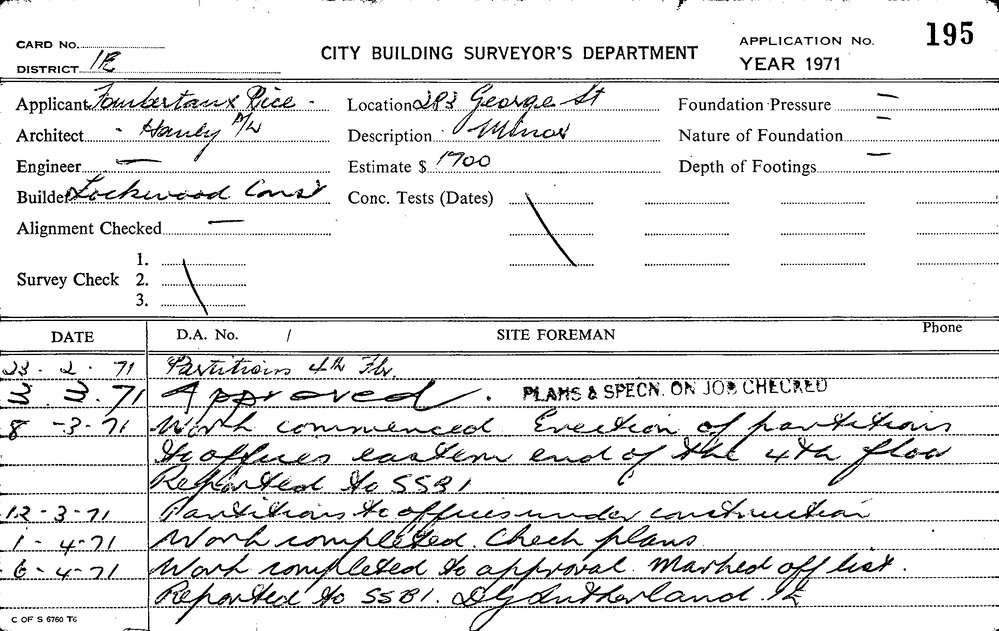 195
CARD No.
CITY BUILDING SURVEYOR'S DEPARTMENT
APPLICATION No.
DISTRICT 1E
YEAR 1971
Applicant Fombertaux Rice - Location 283 George St Foundation Pressure —
Architect - Hanly P/L Description Minor Nature of Foundation —
Engineer — Estimate $ 1700 Depth of Footings —
Builder Lockwood Const Conc. Tests (Dates)
Alignment Checked —
1.
Survey Check 2.
3.
DATE D.A. No. / SITE FOREMAN Phone
23 - 2 - 71 Partitions 4th Flr.
3 3. 71 Approved. PLANS & SPECN. ON JOB CHECKED
8 - 3 - 71 Work commenced Erection of partitions
to offices eastern end of the 4th floor
Reported to SSB1
12 - 3 - 71 Partitions to offices under construction
1 - 4 - 71 Work completed. Check plans
6 - 4 - 71 Work completed to approval. Marked off list.
Reported to SSB1. D G Sutherland. 1E
C OF S 6760 T6